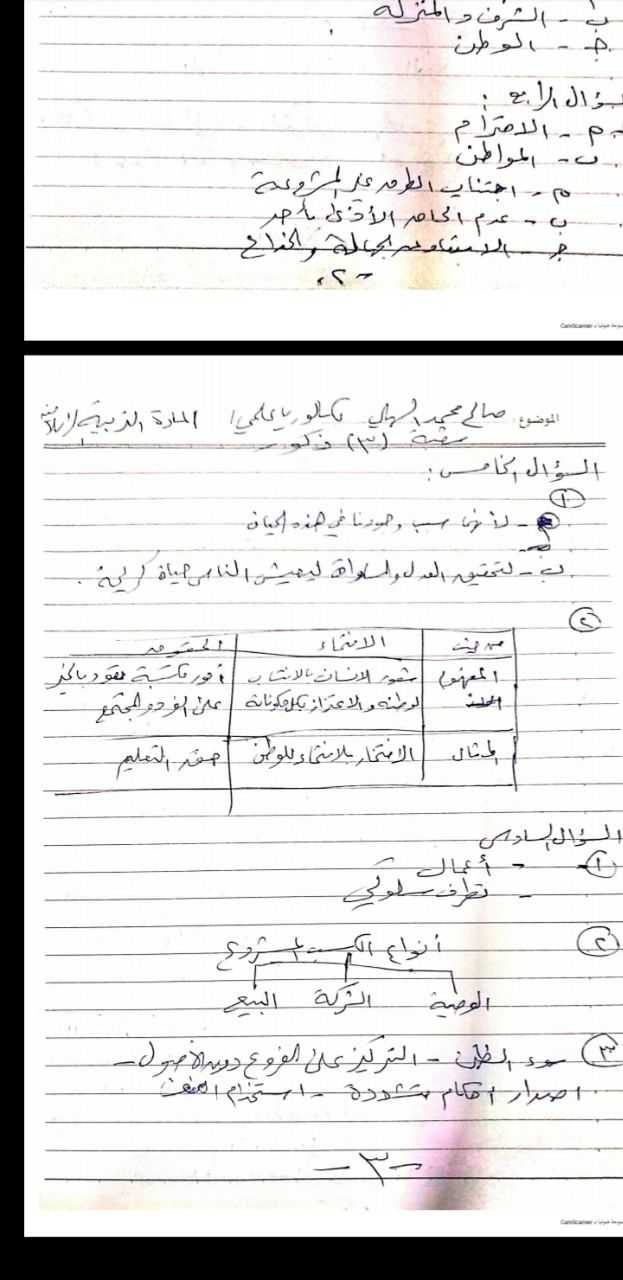 ب - الشرف والمنزلة
ج - الوطن
السؤال الرابع :
م - الاحترام
ب - المواطن
م - اجتناب الطرق غير المشروعة
ب - عدم الحاق الأذى بأحد
ج - الابتعاد عن الجهالة والخداع
- ٢ -
CamScanner
الموضوع: صالح محمد السهلي بكالوريا علمي ١ المادة التربية الإسلامية
شعبة (٣) ذكور
السؤال الخامس :
١
م - لأنها سبب وجودنا في هذه الحياة
ب - لتحقيق العدل والمساواة ليعيش الناس حياة كريمة .
٢
من حيث الانتماء الحقوق
المفهوم شعور الانسان بالانتساب أمور مكتسبة تعود بالخير
لوطنه والاعتزاز بكل مكوناته على الفرد والمجتمع
المثال الافتخار بالانتماء للوطن حق التعليم
السؤال السادس
١ - أعمال
- تطرف سلوكي
٢ أنواع الكسب المشروع
الوصية الشركة البيع
٣ سوء الظن - التركيز على الفروع دون الأصول -
اصدار احكام متشددة - استخدام العنف
- ٣ -
CamScanner